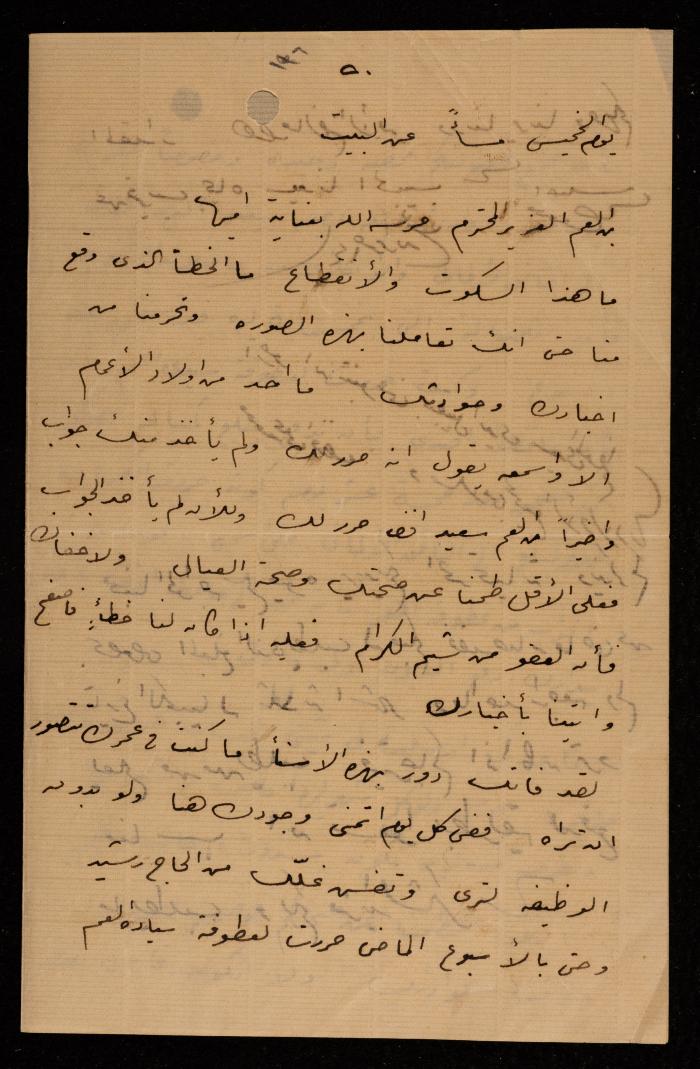 ٥٠
يوم الخميس مساءً عن البيت
ابن العم العزيز المحترم حرسه الله بعنايته امين
ما هذا السكوت والأنقطاع ما الخطأ الذى وقع
منا حتى انك تعاملنا بهذه الصوره وتحرمنا من
اخبارك وحوادثك ما احد من اولاد الأعمام
الا واسمعه يقول انه حرر لك ولم يأخذ منك جواب
واخيراً ابن العم سعيد افندى حرر لك وللأن لم يأخذ الجواب
فعلى الأقل طمنا عن صحتك وصحة العيال ولا خفاك
فأن العفو من شيم الكرام فعليه اذا كان لنا خطأٍ فاصفح
واتينا بأخبارك
لقد فاتك دور بهذه الأثنأ ما كنت فى عمرك تتصور
ان تراه ففى كل يوم اتمنى وجودك هنا ولو بدون
الوظيفه لترى وتفش غلّك من الحاج رشيد
وحتى بالأسبوع الماضى حررت لعطوفة سيادة العم